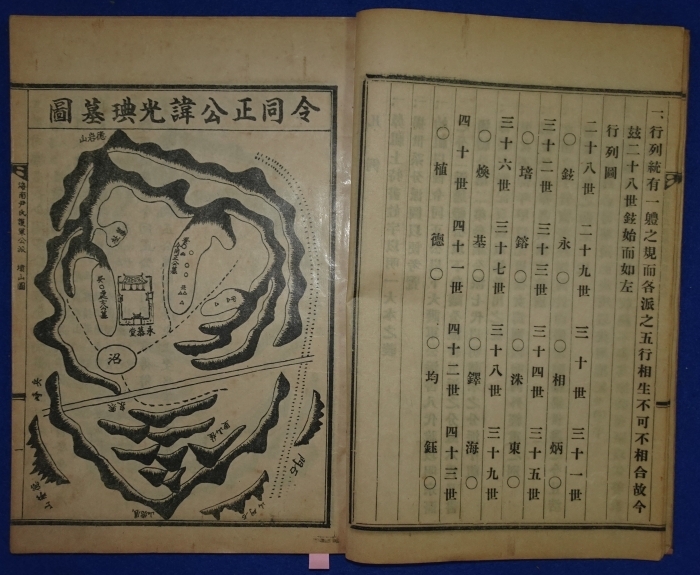 一、行列統有一軆之規而各派之五行相生不可不相合故今
玆二十八世鉉始而如左
行列圖
二十八世 二十九世 三十世 三十一世
○鉉 永○ ○相 炳○
三十二世 三十三世 三十四世 三十五世
○培 鎔○ ○洙 東○
三十六世 三十七世 三十八世 三十九世
○煥 基○ ○鐸 海○
四十世 四十一世 四十二世 四十三世
○植 德○ ○均 鈺○
令同正公諱光琠墓圖
德岩山
永慕堂
沼
海南尹氏護軍公派 墳山圖